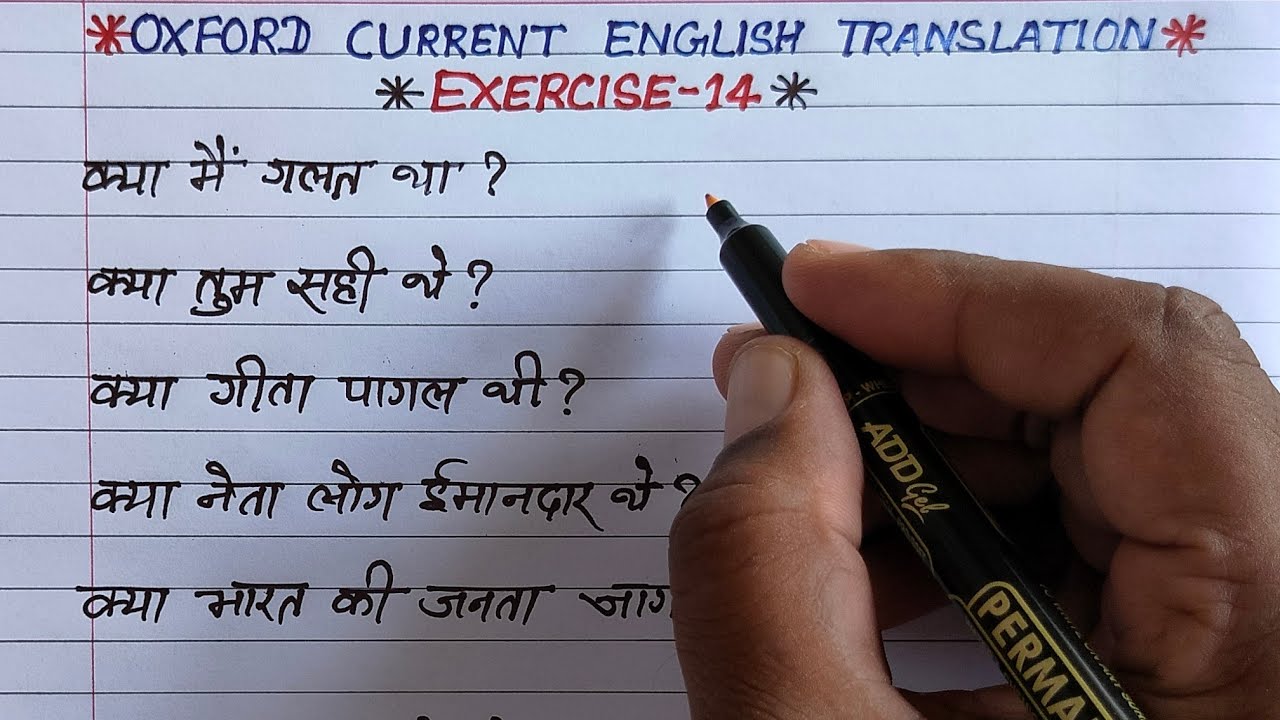 *OXFORD CURRENT ENGLISH TRANSLATION*
*EXERCISE-14*
क्या मैं गलत था ?
क्या तुम सही थे ?
क्या गीता पागल थी ?
क्या नेता लोग ईमानदार थे ?
क्या भारत की जनता
ADD Gel
PERMA